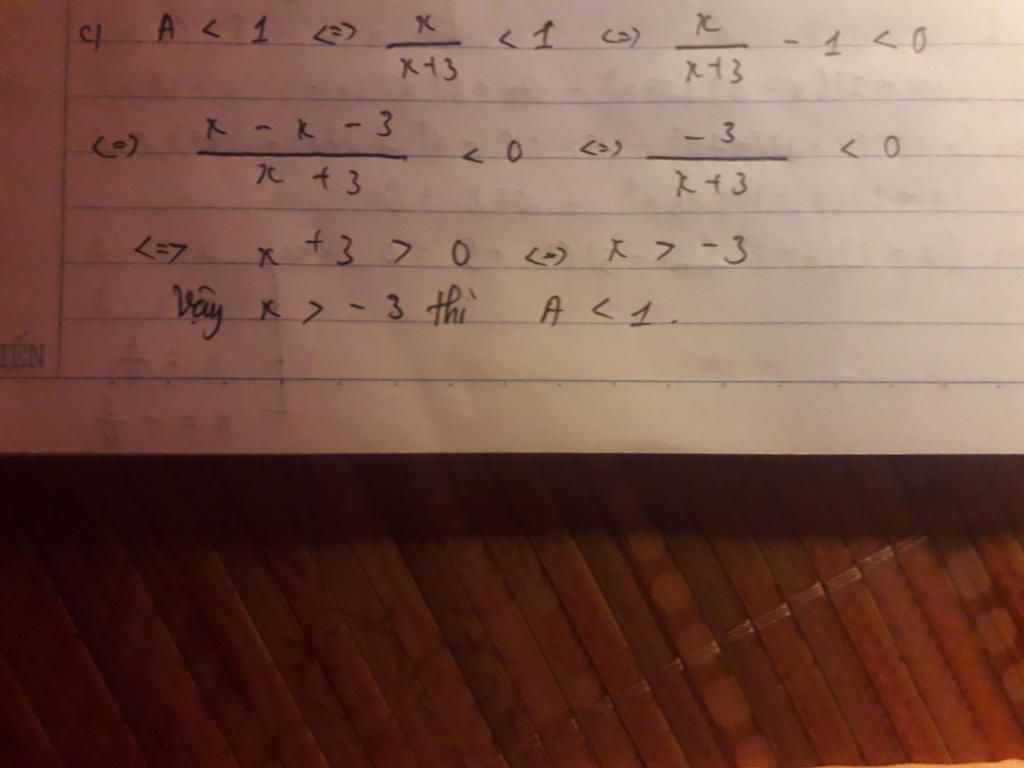 c) A < 1 <=> x/(x+3) < 1 <=> x/(x+3) - 1 < 0
<=> (x - x - 3)/(x + 3) < 0 <=> -3/(x+3) < 0
<=> x + 3 > 0 <=> x > -3
Vậy x > -3 thì A < 1.
IẾN